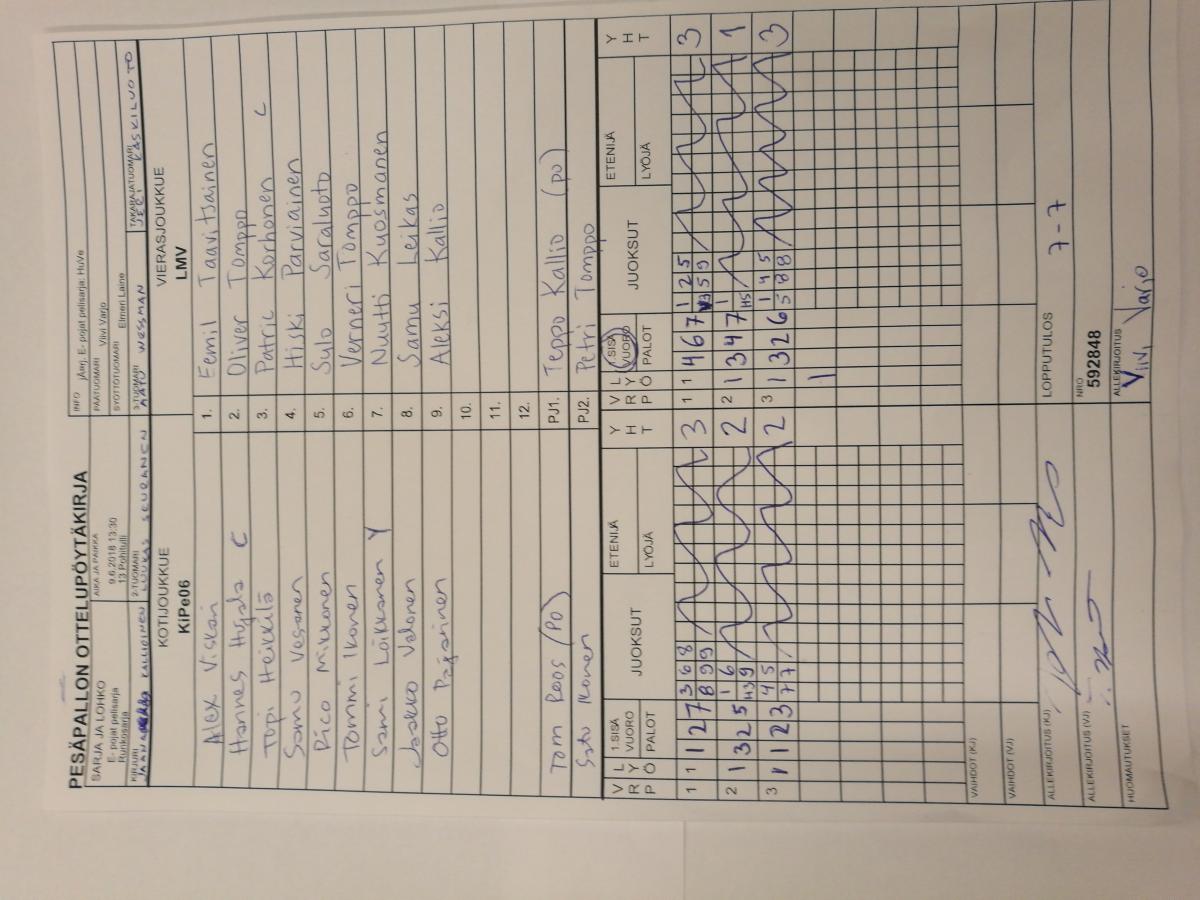 PESÄPALLON OTTELUPÖYTÄKIRJA
SARJA JA LOHKO
E- pojat pelisarja
Runkosarja
AIKA JA PAIKKA
9.6.2018 13:30
13 Pohitulli
INFO jÄarj. E- pojat pelisarja: HuVe
PÄÄTUOMARI Viivi Varjo
SYÖTTÖTUOMARI Elmeri Laine
KIRJURI KALLIOINEN
2-TUOMARI LOUKAS SEURANEN
3-TUOMARI AATU WESSMAN
TAKARAJATUOMARI
KOTIJOUKKUE
KiPe06
VIERASJOUKKUE
LMV
Alex Viskari 1. Eemil Taavitsainen
Hannes Hyyala C 2. Oliver Tomppo
Topi Heikkilä 3. Patric Korhonen C
Samu Vesanen 4. Hiski Parviainen
Rico Mikkonen 5. Sylo Saraluoto
Tommi Ikonen 6. Verneri Tomppo
Sami Läikkanen Y 7. Nuutti Kuosmanen
Jaakko Valonen 8. Samu Leikas
Otto Pajarinen 9. Aleksi Kallio
10.
11.
12.
Tom Roos (PO) PJ1. Teppo Kallio (PO)
Satu Ikonen PJ2. Petri Tomppo
VRP LYÖ 1.SISÄ VUORO PALOT JUOKSUT ETENIJÄ LYÖJÄ YHT
VRP LYÖ 1.SISÄ VUORO PALOT JUOKSUT ETENIJÄ LYÖJÄ YHT
1 1 1 2 7 3 6 8 3 1 1 4 6 7 1 2 5 3
8 9 9 5 9
2 1 3 2 5 1 6 2 2 1 3 4 7 1 1
H3 9 H5
3 1 1 2 3 4 5 2 3 1 3 2 6 1 4 5 3
7 7 5 8 8
1
VAIHDOT (KJ)
VAIHDOT (VJ)
ALLEKIRJOITUS (KJ)
LOPPUTULOS 7-7
ALLEKIRJOITUS (VJ)
NRO
592848
HUOMAUTUKSET
ALLEKIRJOITUS
Viivi Varjo